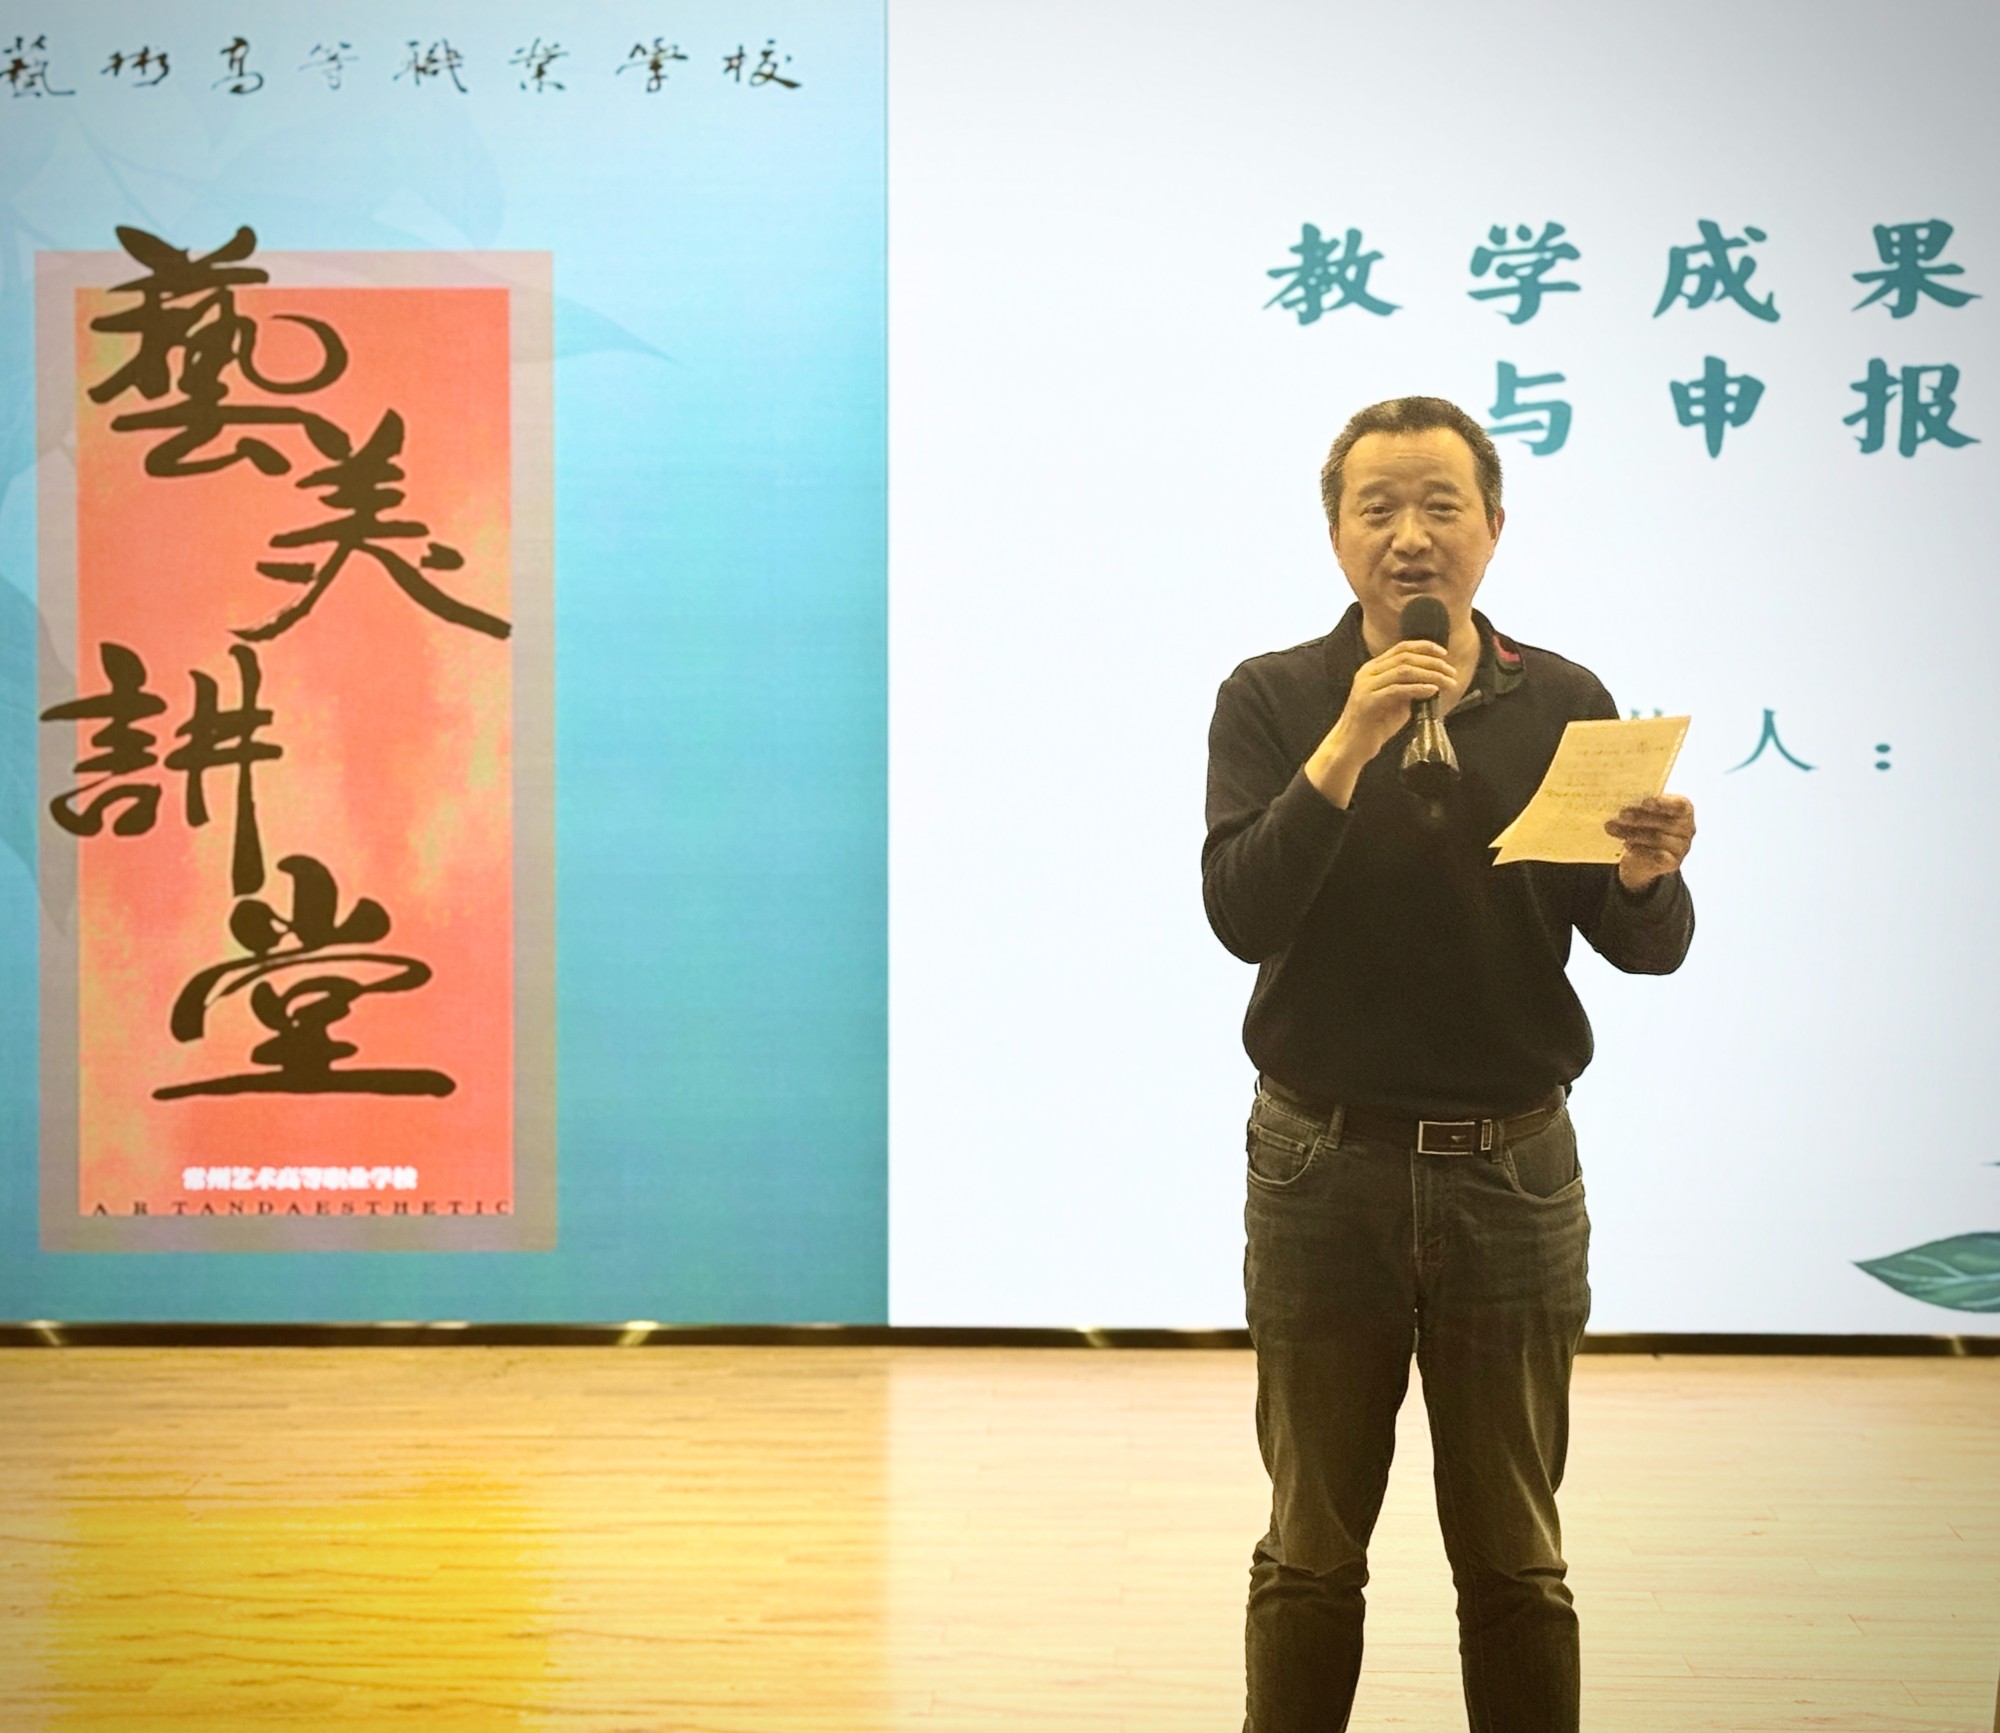 藝術高等職業學校
藝美講堂
常州艺术高等职业学校
ARTANDAESTHETIC
教学成果
与申报
人：